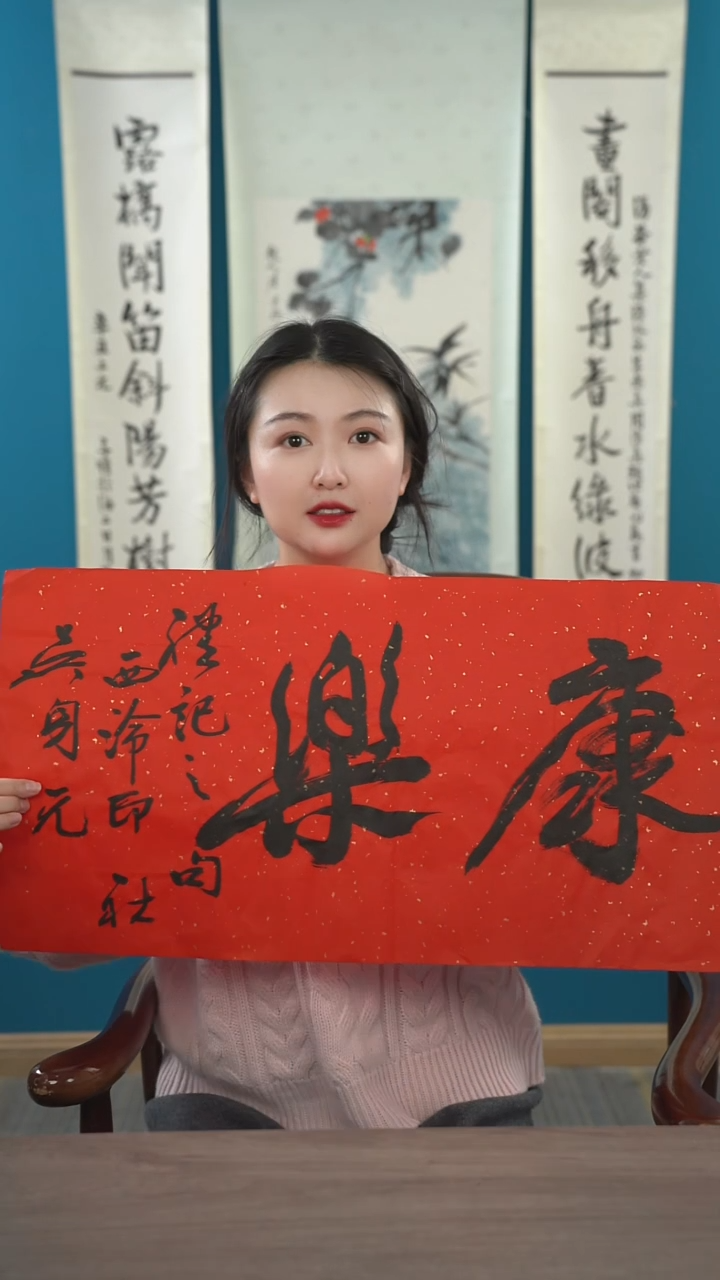 畫閣移舟春水綠波
露橋聞笛斜陽芳樹
康樂
禮記之句
西泠印社
吴身元